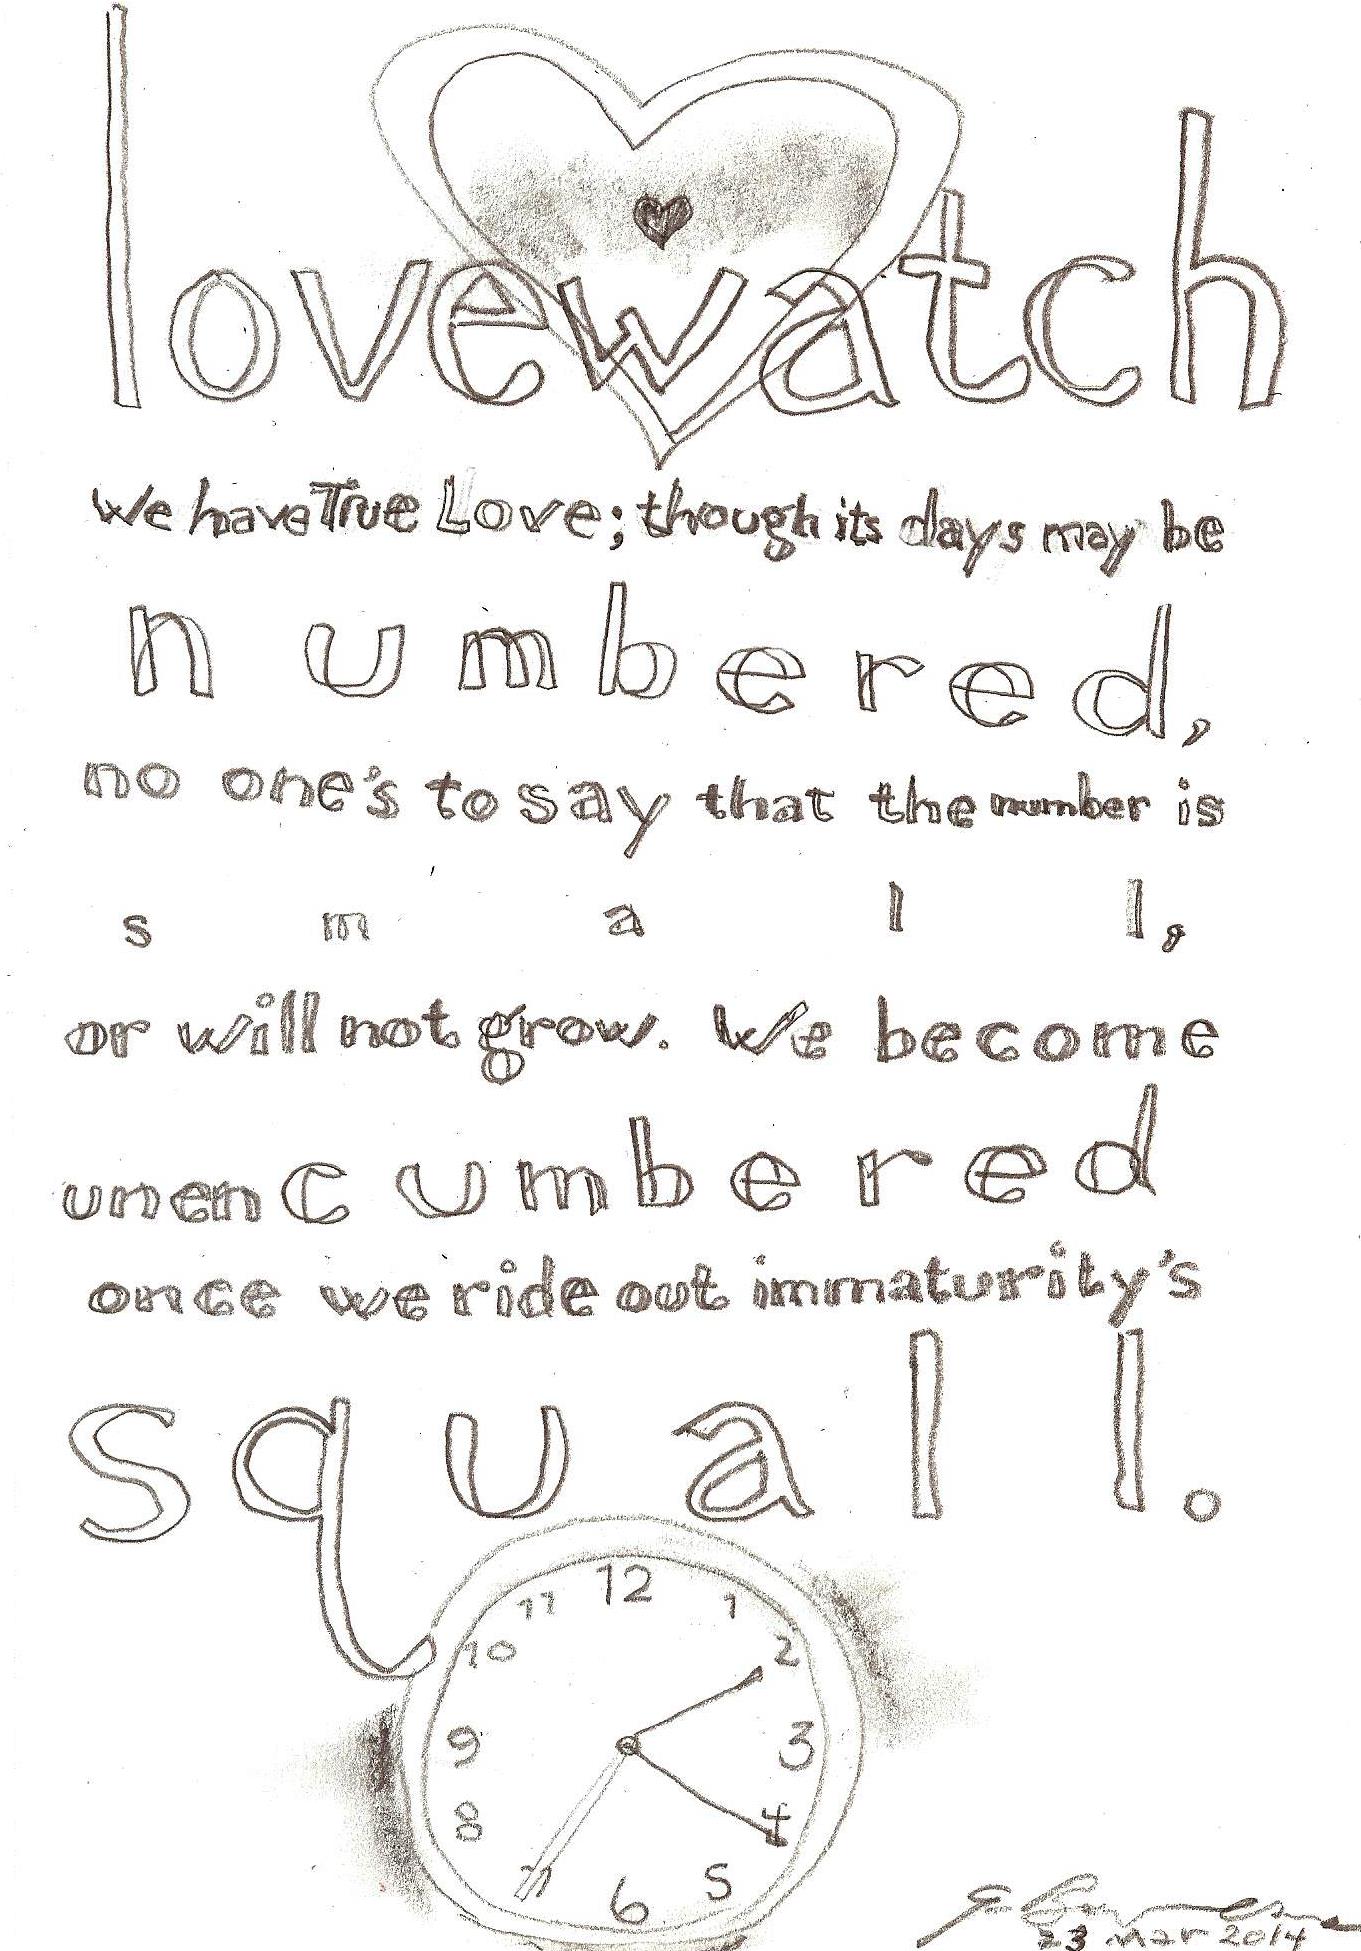 lovewatch
We have True Love; though its days may be
numbered,
no one's to say that the number is
small,
or will not grow. We become
unencumbered
once we ride out immaturity's
squall.
12
11 1
10 2
9 3
8 4
7 5
6
23 Mar 2014